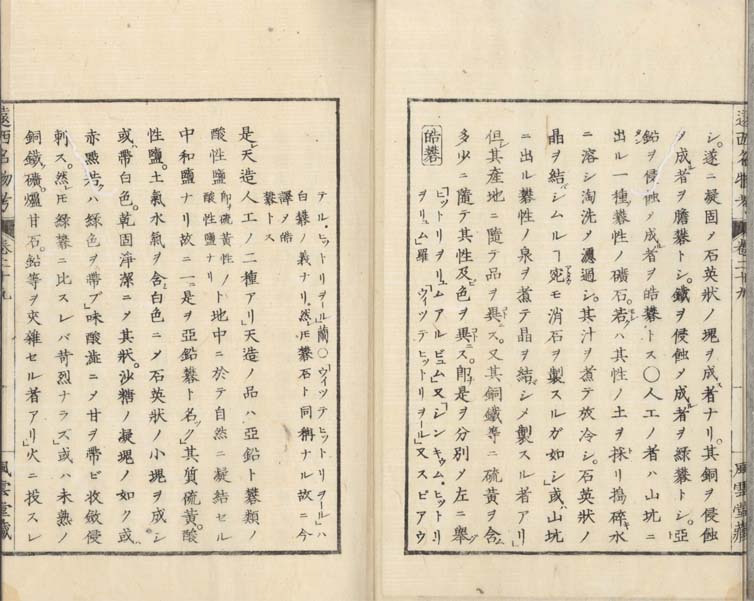 シ。遂ニ凝固メ石英狀ノ塊ヲ成者ナリ。其銅ヲ侵蝕
メ成者ヲ膽礬トシ。鐵ヲ侵蝕メ成者ヲ綠礬トシ。亞
鉛ヲ侵蝕メ成者ヲ皓礬トス〇人工ノ者ハ山坑ニ
出ル一種礬性ノ礦石。若ハ其性ノ土ヲ採リ搗碎キ水
ニ溶シ淘洗メ濾過シ。其汁ヲ煮テ放冷シ。石英狀ノ
晶ヲ結シムルヿ宛モ消石ヲ製スルガ如シ」或山坑
ニ出ル礬性ノ泉ヲ煮テ晶ヲ結シメ製スル者アリ」
但其産地ニ隨テ品ヲ異ス。又其銅鐵等ニ硫黃ヲ含
多少ニ隨テ其性及色ヲ異ス。卽是ヲ分別メ左ニ舉
皓礬
「ヒットリヲリュムアルビュム」又「シンキゥム・ヒットリ
ヲリュム」羅「ウィッテヒットリヲール」又スピアウ
テル・ヒットリヲール」蘭〇ウィッテヒットリヲール」ハ
白礬ノ義ナリ。然𪜈礬石ト同稱ナル故ニ今
譯メ皓
礬トス
是天造人工ノ二種アリ」天造ノ品ハ亞鉛ト礬類ノ
酸性鹽卽硫黃性ノ酸性鹽ナリト地中ニ於テ自然ニ凝結セル
中和鹽ナリ故ニ一ニ是ヲ亞鉛礬ト名ク」其質硫黃酸
性鹽。土氣水氣ヲ含白色ニメ石英狀ノ小塊ヲ成シ
或帶白色。乾固淨潔ニメ其狀。沙糖ノ凝塊ノ如ク或
赤㸃若ハ綠色ヲ帶ブ」味酸澁ニメ甘ヲ帶ビ收斂侵
刺ス。然𪜈綠礬ニ比スレバ苛烈ナラズ」或ハ未熟ノ
銅鐵礦。爐甘石。鉛等ヲ夾雜セル者アリ」火ニ投スレ
遠西名物考 卷之二十九
風雲堂藏